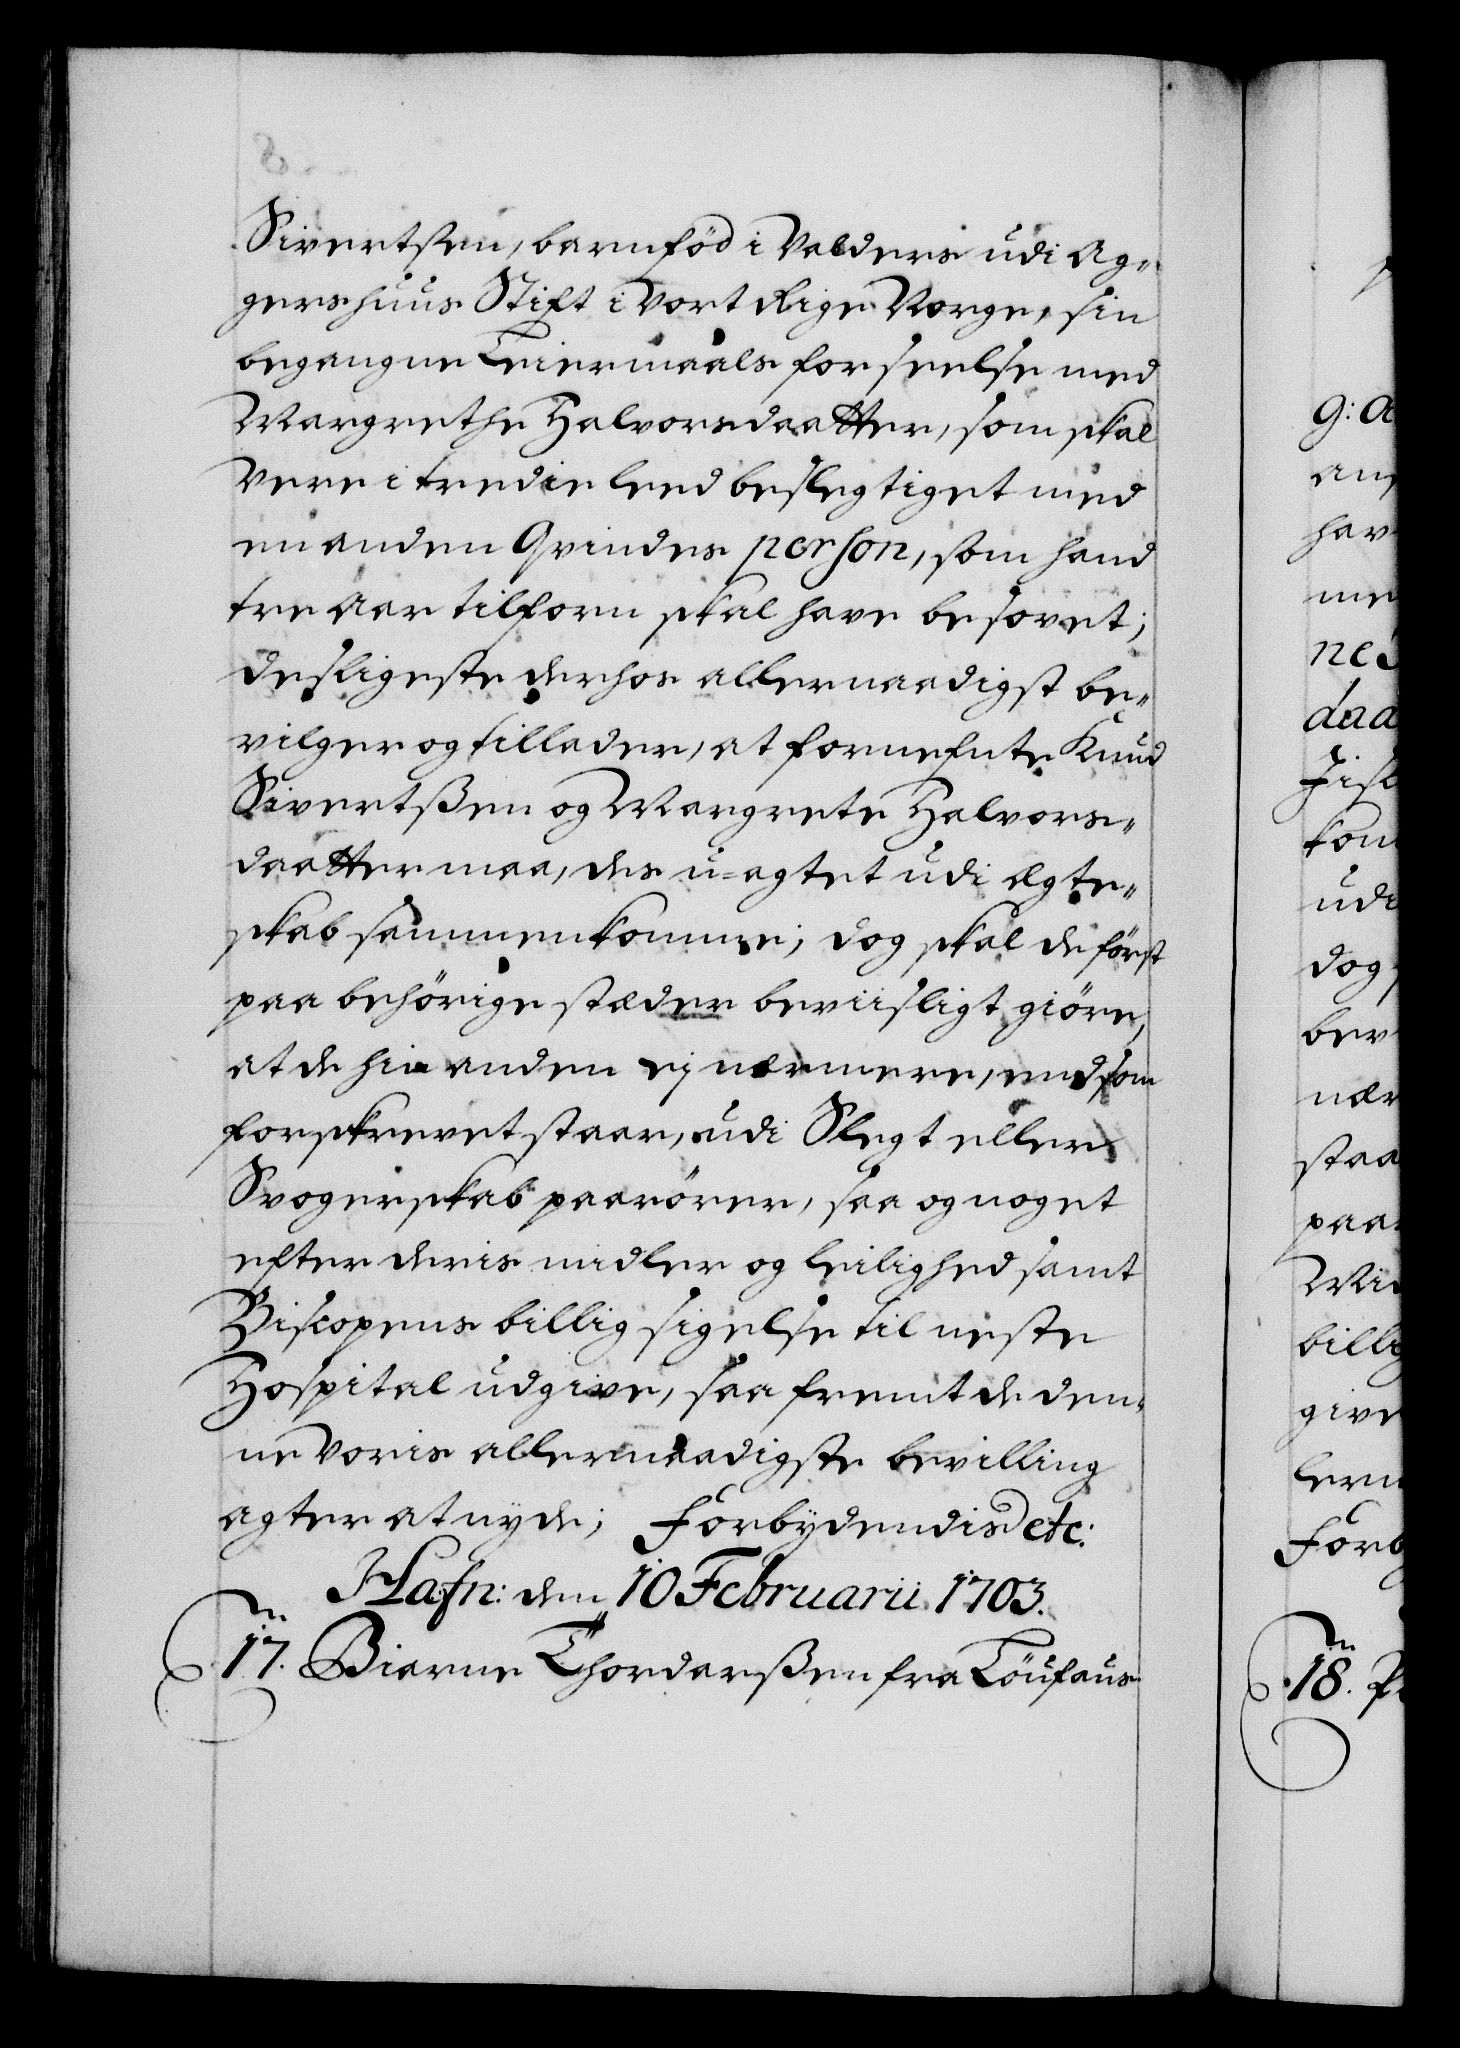 Sivertsen, barnföd i Valders udi Ag-
gershuus Stift i vort Rige Norge, sin
begangne Leiermaals forseelse med
Margrethe Halvorsdaatter, som skal
vere i tredie leed beslegtiget med
en anden Qvindes person, som hand
tre aar tilforn skal have besovet;
desligeste derhos allernaadigst be-
vilger og tillader, at fornefnte Knud
Sivertsßen og Margrete Halvors-
daatter maa, des u-agtet udi Egte-
skab sammenkomme; dog skal de först
paa behörige stæder beviisligt giöre,
at de hin anden ej nærmere, end som
forskrevet staar, udi Slegt eller
Svogerskab paarörer, saa og noget
efter deris midler og leilighed samt
Biscopens billig sigelse til neste
Hospital udgive, saa fremt de den-
ne voris allernaadigste bevilling
agter at nyde; Forbydendis etc:
Hafn: den 10 Februarii 1703.
17. Biarne Thordarßen fra Löufaus
g: A
ans
hav
me
ned
daa
Jisl
kom
udi
dog
bev
nær
staa
paa
Mid
billi
give
lern
Forb
18. P